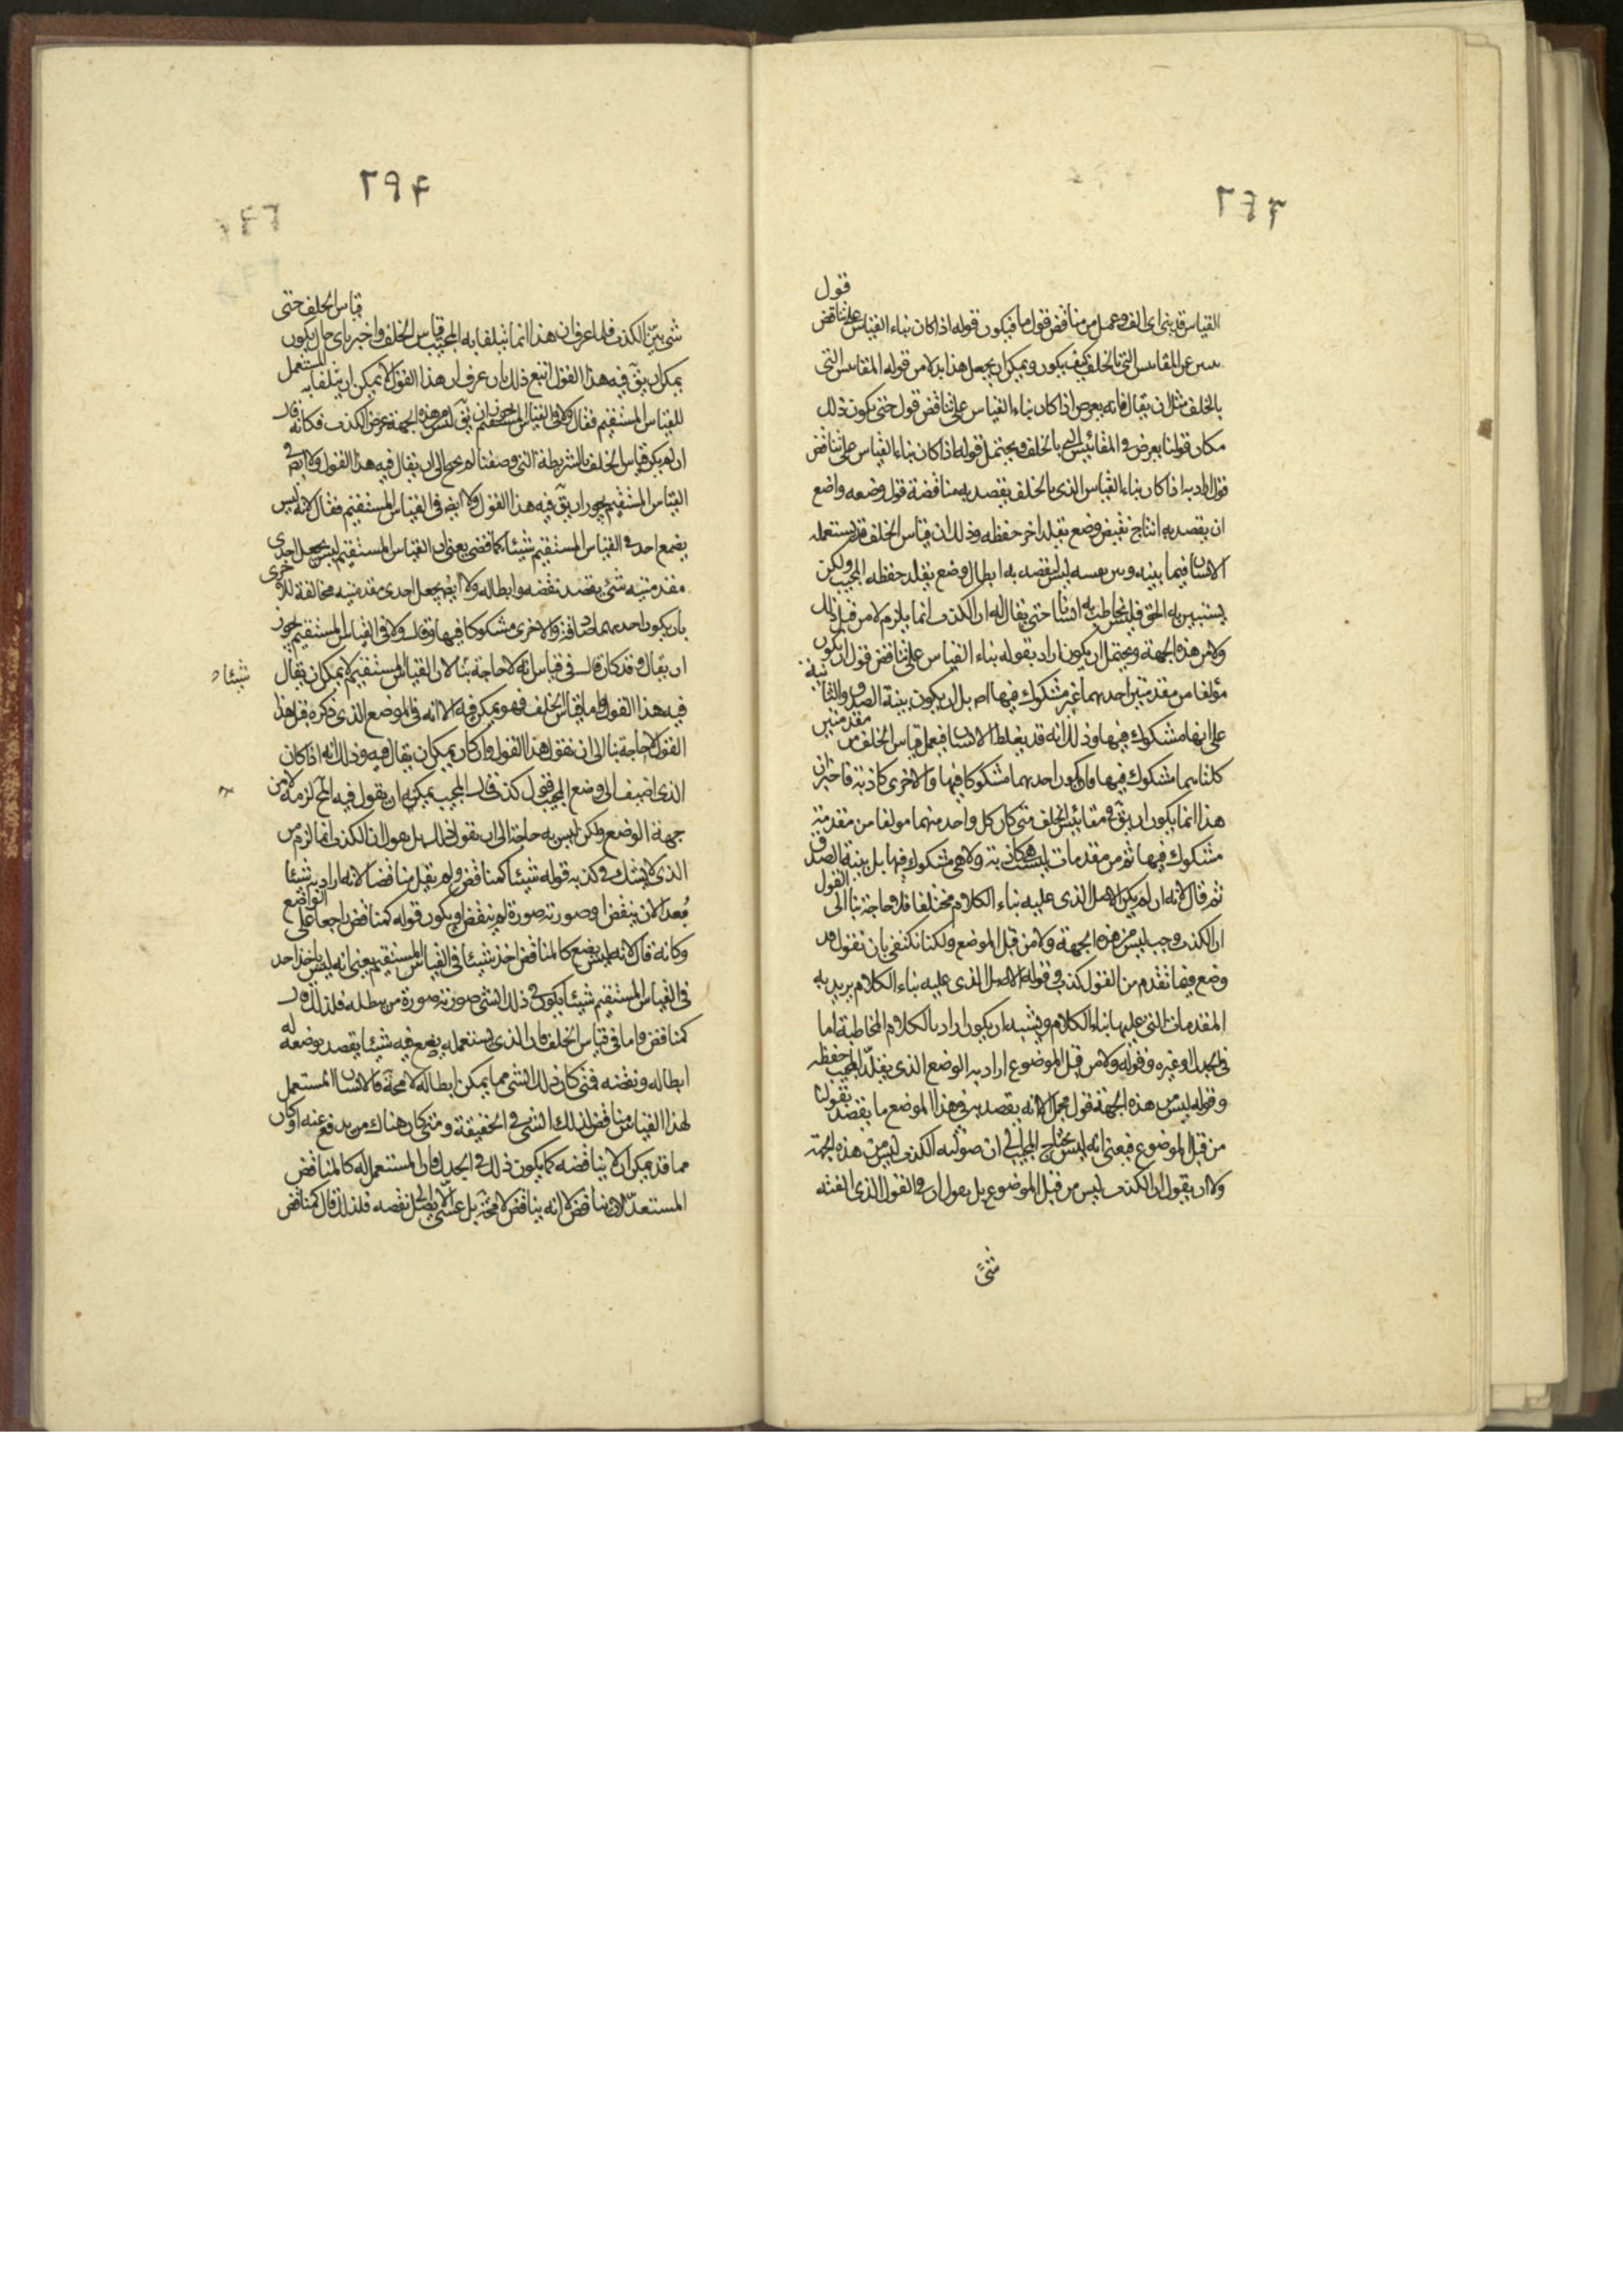 قول
القياس قد بنى اى الف وعمل من مناقض قول ما فيكون قوله اذا كان بناء القياس على تناقض
عن المقاييس التى بالخلف كيف يكون ويمكن ان يجعل هذا بدلا من قوله المقاييس التى
بالخلف مثل ان يقال فانه يعرض اذا كان بناء القياس على تناقض قول حتى يكون ذلك
مكان قولنا يعرض فى المقاييس التى بالخلف ويحتمل قوله اذا كان بناء القياس على تناقض
قول اراد به اذا كان بناء القياس الذى بالخلف يقصد به مناقضة قول وضعه واضع
ان يقصد به انتاج نقيض وضع تقلد اخر حفظه وذلك ان قياس الخلف قد يستعمله
الانسان فيما بينه وبين نفسه ليس لقصد به ابطال وضع تقلد حفظه المجيب ولكن
يستبين به الحق فليس يخاطب به انسانا حتى يقال له ان الكذب انما يلزم لا من قبل ذلك
ولا من هذه الجهة ويحتمل ان يكون اراد بقوله بناء القياس على تناقض قول ان يكون
مؤلفا من مقدمتين احدهما غير مشكوك فيها اصلا بل ان يكون بينة الصدق والثانية
على انها مشكوك فيها وذلك انه قد يغلط الانسان فيعمل قياس الخلف من مقدمتين
كلتاهما مشكوك فيها وان يكون احدهما مشكوكا فيها والاخرى كاذبة فاخبر ان
هذا انما يكون ان يق فى مقاييس الخلف متى كان كل واحد منهما مولفا من مقدمة
مشكوك فيها ثم من مقدمات ليست كاذبة ولا هى مشكوك فيها بل بينة الصدق
ثم قال لانه ان لم يكن الاصل الذى عليه بناء الكلام مختلفا فلا حاجة بنا الى القول
ان الكذب وجب ليس من هذه الجهة ولا من قبل الموضع ولكنا نكتفى بان نقول قد
وضع فيما تقدم من القول كذب وقوله الاصل الذى عليه بناء الكلام يريد به
المقدمات التى عليها بناء الكلام ويشبه ان يكون اراد بالكلام المخاطبة اما
فى الجدل او غيره وقوله ولا من قبل الموضوع اراد به الوضع الذى يقلد المجيب حفظه
وقوله ليس من هذه الجهة قول مجمل الا انه يقصد به فى هذا الموضع ما يقصد بقولنا
من قبل الموضوع فيعنى انه ليس يحتاج المجيب الى ان الكذب ليس من هذه الجهة
ولا ان يقول ان الكذب ليس من قبل الموضوع بل يقول ان فى القول الذى الفته
شئ
٢٩٤
قياس الخلف حتى
شئ بين الكذب فلما عرف ان هذا انما يتلقا به المجيب قياس الخلف واخبر باى حال يكون
يمكن ان يق فيه هذا القول اتبع ذلك بان عرف ان هذا القول لا يمكن ان يتلقا به المستعمل
للقياس المستقيم فقال ولا فى القياس المستقيم يجوز ان يق ليس من هذه الجهة عرض الكذب فكانه قال
ان لم يكن قياس الخلف بالشريطة التى وصفنا لم يحتج الى ان يقال فيه هذا القول ولا ايض فى
القياس المستقيم يجوز ان يق فيه هذا القول ولا ايض فى القياس المستقيم فقال لانه ليس
يضع احد فى القياس المستقيم شيئا كما قضى يعنى ان القياس المستقيم ليس يجعل احدى
مقدمتيه شئ يقصد نقضه وابطاله ولا ايض يجعل احدى مقدمتيه مخالفة للاخرى
بان يكون احدهما صادقة والاخرى مشكوكا فيها وقال ولا فى القياس المستقيم يجوز
ان يقال وقد كان قال فى قياس انه لا حاجة بنا لان القياس المستقيم لا يمكن ان يقال شيئا
فيه هذا القول واما قياس الخلف فهو يمكن فيه الا انه فى الموضع الذى ذكره قبل هذا
القول لا حاجة بنا الى ان نقول هذا القول وان كان يمكن ان يقال فيه وذلك انه اذا كان
الذى اضيف الى وضع المجيب قول كذب فان المجيب يمكنه ان يقول فيه المح لزمه لا من
جهة الوضع ولكن ليس به حاجة الى ان يقول ذلك بل هو ان الكذب انما لزم من
الذى لا يشك فى كذبه قوله شيئا كمناقض ولم يقل مناقضا لانه اراد به شيئا
معدا لان ينقض او صورته صورة لم ينقض ويكون قوله كمناقض راجعا على الواضع
وكانه قال لانه ليس يضع كالمناقض احد شيئا فى القياس المستقيم يعنى انه ليس ياخذ احد
فى القياس المستقيم شيئا يكون فى ذلك الشئ صورته صورة من يبطله فلذلك قال
كمناقض واما فى قياس الخلف فان الذى يستعمله يضع فيه شيئا يقصد بوضعه له
ابطاله ونقضه فمتى كان ذلك الشئ مما يمكن ابطاله لا محة فالانسان المستعمل
لهذا القياس مناقض لذلك الشئ فى الحقيقة ومتى كان هناك من يدفع عنه او كان
مما قد يمكن ان لا يناقضه كما يكون ذلك فى الجدل فان المستعمل له كالمناقض
المستعد لان يناقض لا انه يناقض لا محة بل عسى الا يبطل نقضه فلذلك قال كمناقض